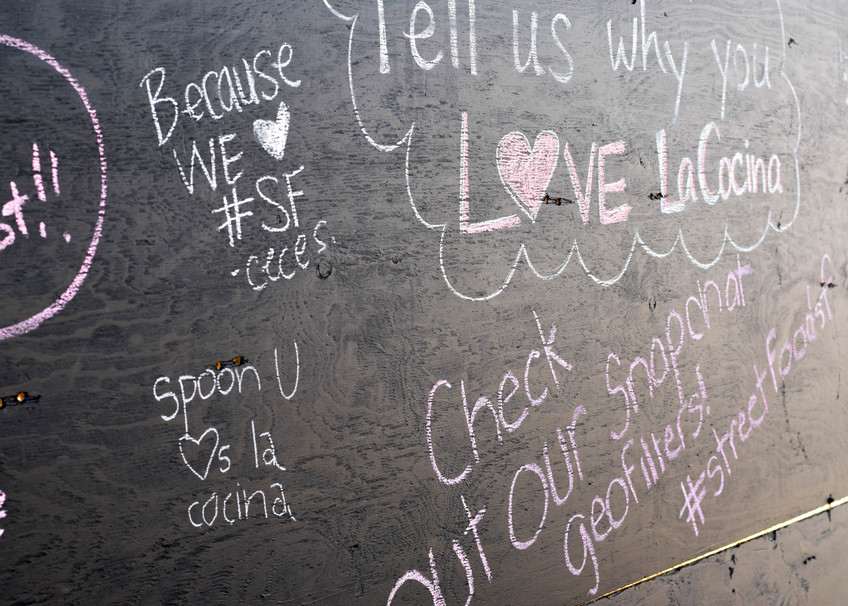 Tell us why you
LOVE LaCocina
Because
WE ♥
#SF
-ceces.
spoon U
♡s la
cocina.
Check
out our Snapchat
geofilters!
#streetfoodsf